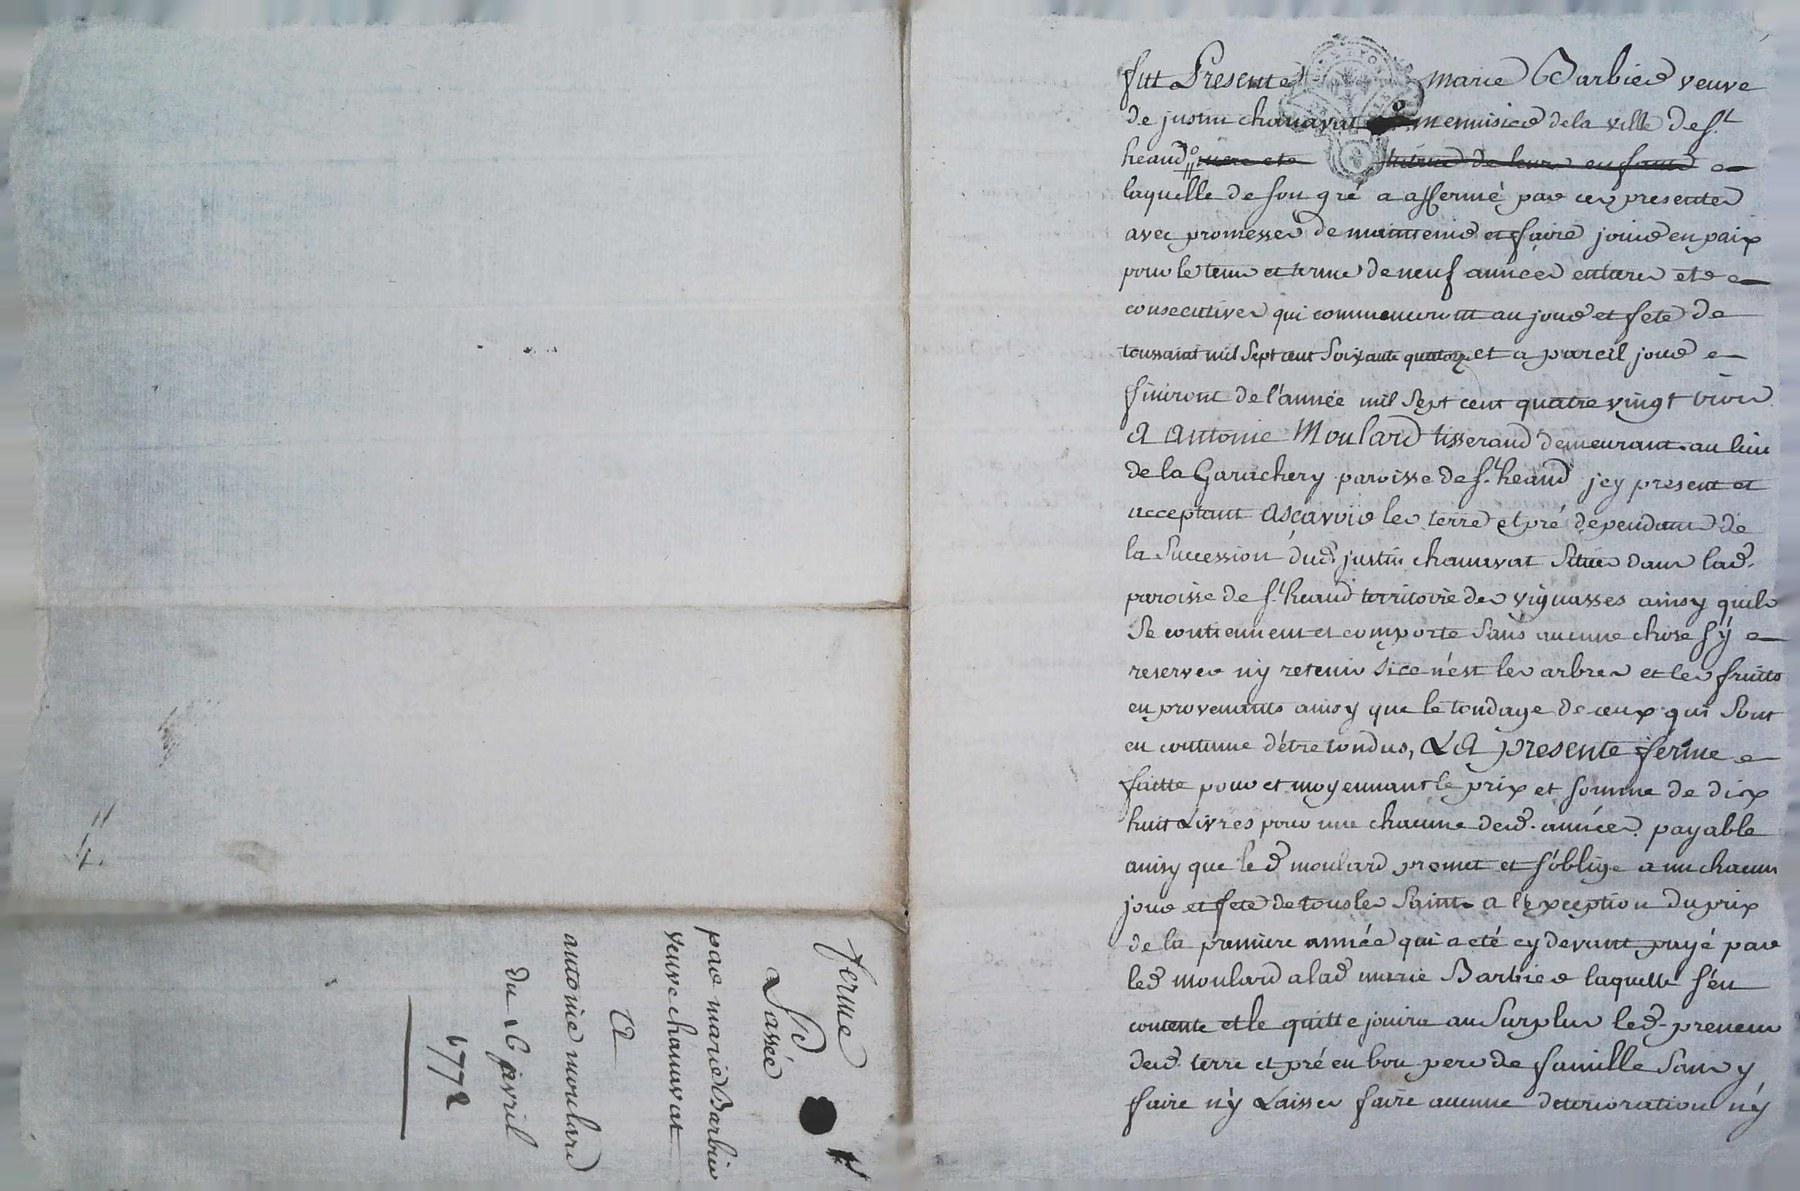 fut Presente marie Barbier veuve
de justin chanavat menuisier dela ville de st
heand mere et tutrice de leurs enfants
laquelle de son gré a affermé par ces presentes
avec promesses de maintenir et faire jouir en paix
pour le tems et terme de neuf années entieres et
consecutives qui commenceront au jour et fete de
toussaint mil sept cent soixante quatorze et a pareil jour
finiront de l'année mil sept cent quatre vingt trois
A Antoine Moulard tisserand demeurant au lieu
de la Garachery paroisse de st heand jcy present et
acceptant Ascavoir les terre et pré dependants de
la succession dud. justin chanavat situés dans lad.
paroisse de st heand territoire des vignasses ainsy quils
se contiennent et comporte sans aucune chose s'y
reserver ny retenir sice n'est les arbres et les fruits
en provenants ainsy que le tondage de ceux qui sont
en coutume d'étre tondus, LA presente ferme
faitte pour et moyennant le prix et somme de dix
huit Livres pour une chacune desd. années payable
ainsy que led moulard promet et s'oblige a un chacun
jour et fete de tous les Saints a l'exception du prix
de la premiere année qui a eté cy devant payé par
led moulard a lad marie Barbier laquelle s'en
contente et le quitte jouira au surplus led. preneur
desd. terre et pré en bon pere de famille sans y
faire n'y Laisser faire aucune deterioration n'y
ferme
Passée
par marie Barbier
veuve chanavat
A
antoine moulard
du 16 avril
1772